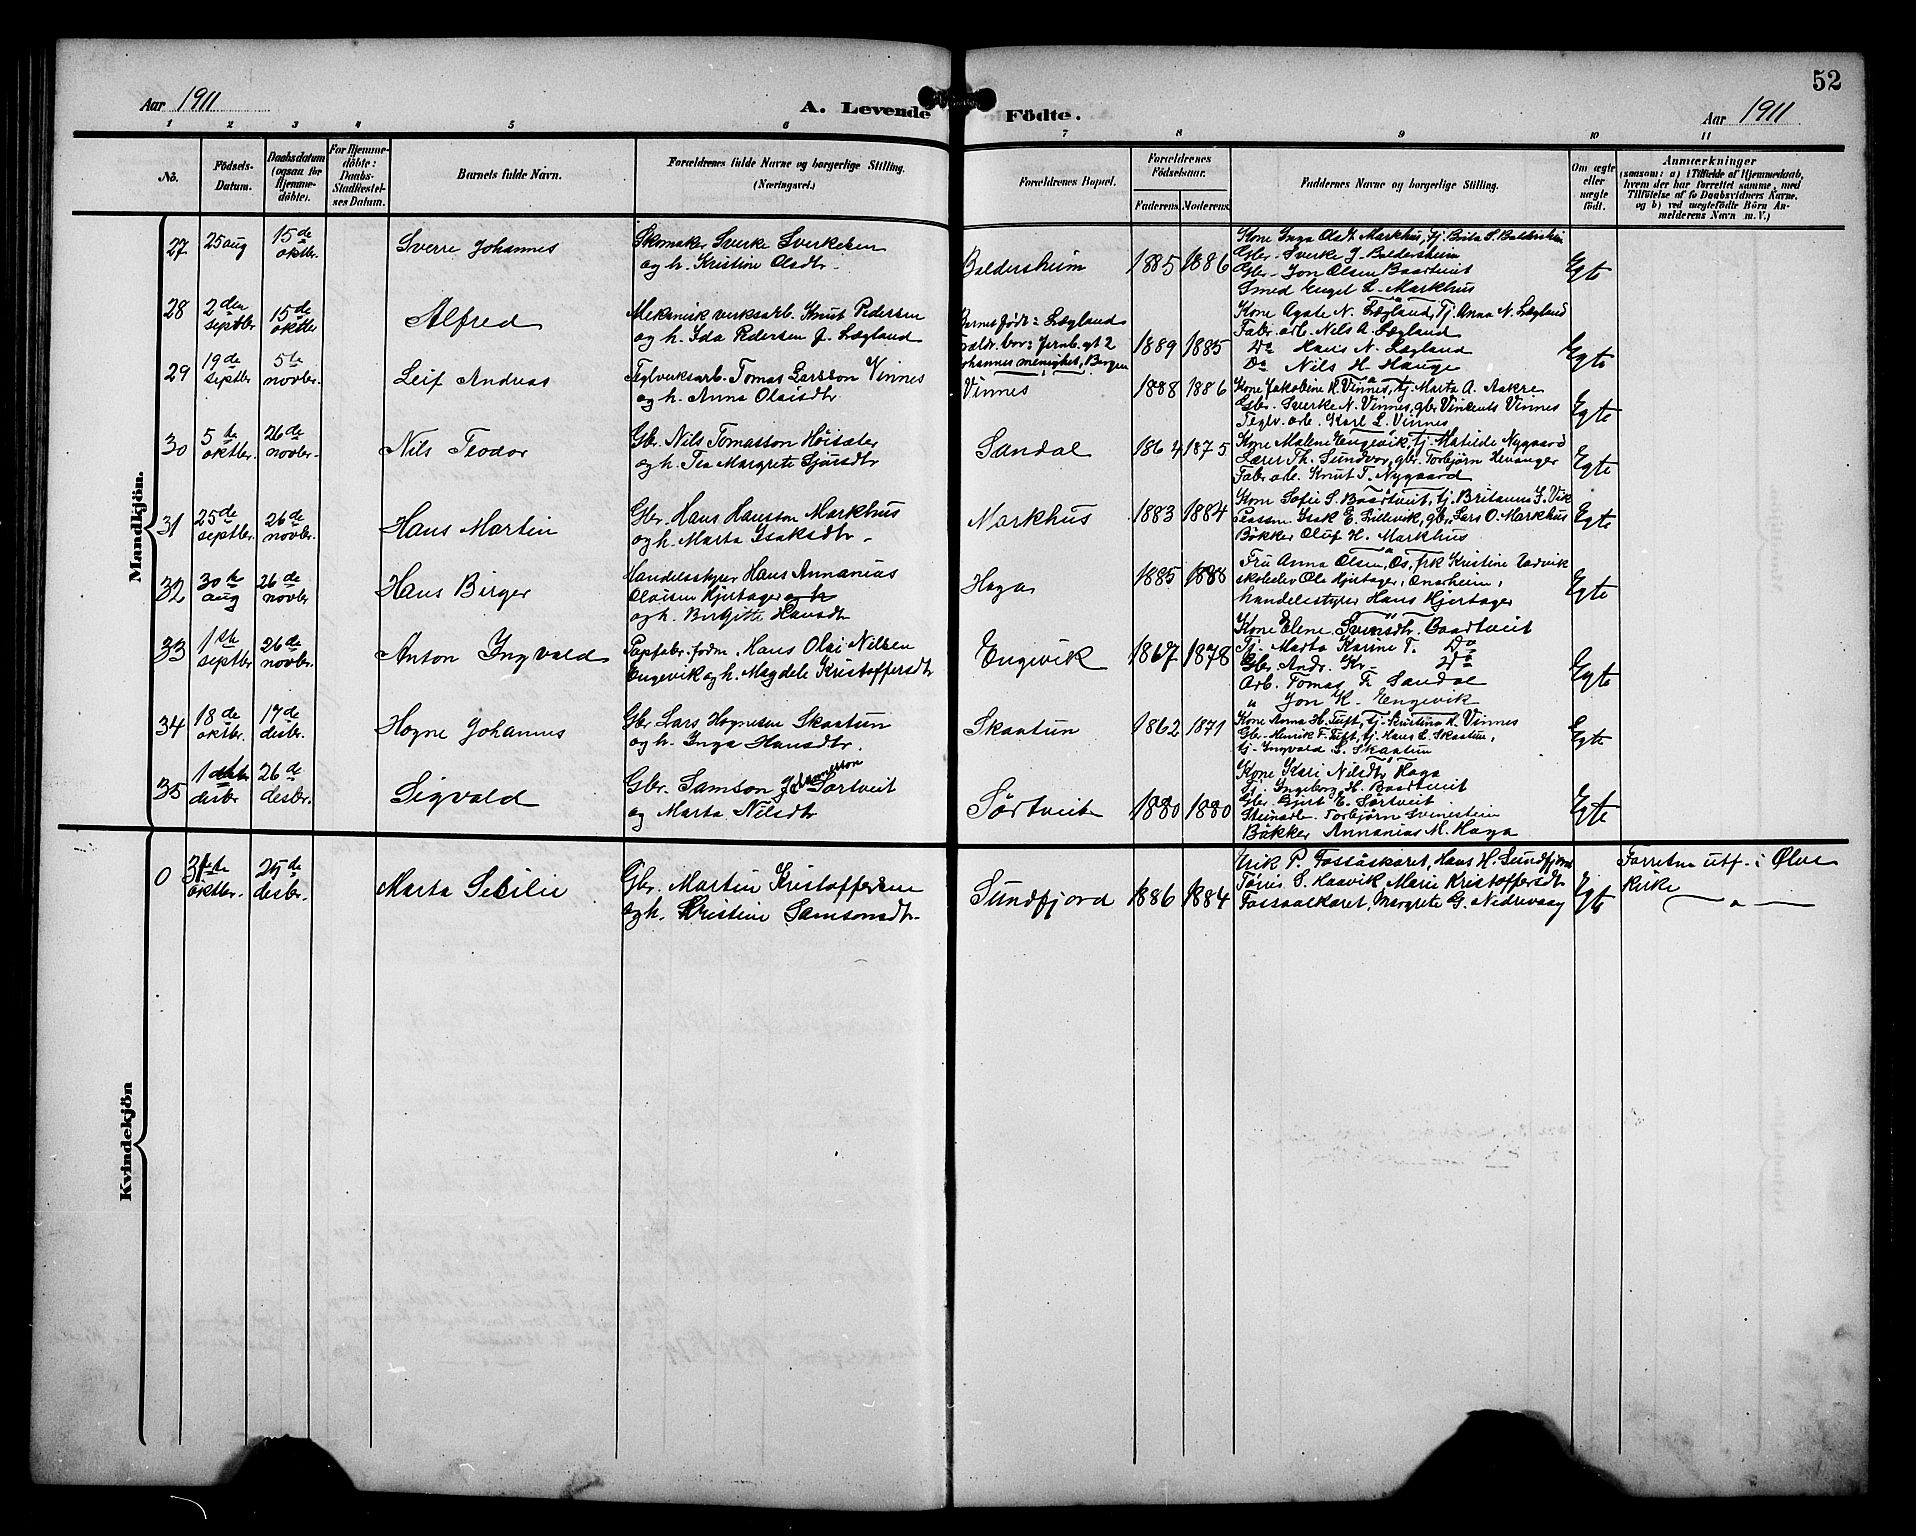 52
Aar 1911
A. Levende Födte.
Aar 1911
1 2 3 4 5 6 7 8 9 10 11
No.
Födsels-
Datum.
Daabsdatum
(ogsaa for
Hjemme-
döbte).
For Hjemme-
döbte:
Daabs-
Stadfæstel-
ses Datum.
Barnets fulde Navn.
Forældrenes fulde Navne og borgerlige Stilling.
(Næringsvei.)
Forældrenes Bopæl.
Forældrenes
Födselsaar.
Faderens. Moderens.
Faddernes Navne og borgerlige Stilling.
Om ægte
eller
uægte
født.
Anmærkninger
(saasom: a) i Tilfælde af Hjemmedaab,
hvem der har forrettet samme, med
Tilföielse af to Daabsvidners Navne,
og b) ved uægtefödte Börn An-
melderens Navn m. V.)
Mandkjön.
27 25 aug 15de oktbr. Sverre Johannes
Skomaker Sverke Sverkesen
og h. Kristine Olsdtr.
Baldersheim 1885 1886
Kone Inga Olsdt Markhus, tj. Brita S. Baldersheim
Gbr. Sverke J. Baldersheim
Gbr. Jon Olsen Baadtveit
Smed Engel L. Markhus
Egte
28 2den septbr 15de oktbr Alfred
Mekanisk verksarb. Knut Pedersen
og h. Ida Pedersen f. Lægland
Barnet født: Lægland
Foældr. bor: Jernb. gt 2
Johannes menighet, Bergen
1889 1885
Kone Agate N. Lægland, Tj. Anna N. Lægland
Fabr. arb. Nils A. Lægland
Do Hans N. Lægland
Do Nils H. Hauge
Egte
29 19de septbr 5te novbr. Leif Andreas
Teglverksarb. Tomas Larsson Vinnes
og h. Anna Olaisdtr
Vinnes 1888 1886
Kone Jakobine K. Vinnes, tj. Marta A. Aakre
Gbr. Sverke N. Vinnes, gbr Vincents Vinnes
Teglv. arb. Karl L. Vinnes
Egte
30 5te oktbr. 26de novbr. Nils Teodor
Gbr. Nils Tomasson Høisæter
og h. Tea Margrete Sjursdtr
Sandal 1864 1875
Kone Malene Engevik, tj. Matilde Nygaard
Lærer Th. Sundvor, gbr. Torbjørn Hevanger
Fabr. arb. Knut T. Nygaard
Egte
31 25de septbr 26de novbr. Hans Martin
Gbr. Hans Hansson Markhus
og h. Marta Isaksdtr.
Markhus 1883 1884
Kone Sofie S. Baadtveit, tj. Britanus I. Vik
Isak E. Lillevik, gbr. Lars O. Markhus
Bøkker Oluf H. Markhus
Egte
32 30te aug 26de novbr Hans Birger
Handelsstyrer Hans Annanias
Olaisen Hjertager og h
og h. Birgitte Hansdtr
Haga 1885 1888
Fru Anna Olsen, Os, frk Kristine
skoleelev Ole Hjertager, Onarheim,
handelsstyrer Hans Hjertager
Egte
33 1ste septbr 26de novbr. Anton Ingvald
Papfabr. form. Hans Olai Nilsen
Engevik og h. Magdele Kristoffersdtr
Engevik 1867 1878
Kone Elene Svensdtr. Baadtveit
Tj. Marta Karine T. Do
Gbr. Andr. Kr. Do
Arb. Tomas T. Sandal
" Jon K. Engevik
Egte
34 18de oktbr. 17de desbr. Hogne Johannes
Gbr Lars Hognesen Skaatun
og h. Inga Hansdtr.
Skaatun 1862 1871
Kone Anna H. Tuft, tj. Kristina K. Vinnes
Gbr. Henrik T. Tuft, tj. Hans L. Skaatun,
tj. Ingvald L. Skaatun
Egte
35 1ste desbr 26de desbr. Sigvald
Gbr. Samson Johannesson Sørtveit
og Marta Nilsdtr
Sørtveit 1880 1880
Kone Kari Nilsdtr Haga
Tj. Ingeborg H. Baadtveit
Gbr. Gjert E. Sørtveit
Torbjørn Svinestein
Bøkker Annanias M. Haga
Egte
Kvindekjön
0 31te oktbr. 25de desbr. Marta Secilie
Gbr. Martin Kristoffersen
og h. Kristine Samsonsdtr.
Sundfjord 1886 1884
Erik P. Fossaaskaret, Hans H. Sundfjord
Tøris S. Haavik, Marie Kristoffersdtr
Fossaaskaret, Margrete G. Nedrevaag
Egte
Forretn utf. i Ølve
Kirke